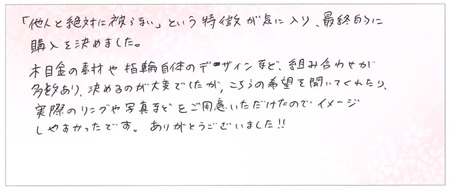 「他人と絶対に被らない」という特徴が気に入り、最終的に
購入を決めました。
木目金の素材や指輪自体のデザインなど、組み合わせが
多数あり、決めるのが大変でしたが、こちらの希望を聞いてくれたり、
実際のリングや写真などをご用意いただけたのでイメージ
しやすかったです。ありがとうございました!!